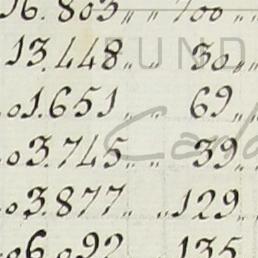 16.803 „ „ 700 „ „
13.448 „ „ 30 „ „
01.651 „ „ 69 „ „
03.745 „ „ 39 „ „
03.877 „ „ 129 „ „
06.092 135
FUND